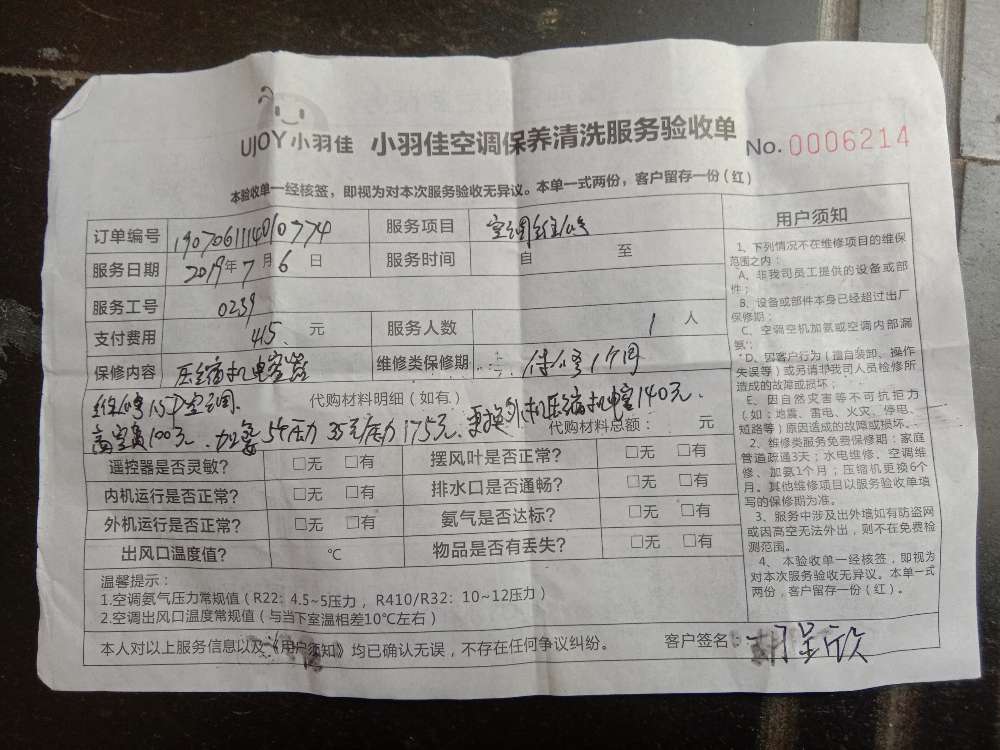 UJOY小羽佳 小羽佳空调保养清洗服务验收单 No.0006214
本验收单一经核签，即视为对本次服务验收无异议。本单一式两份，客户留存一份（红）
订单编号 1907061114010774 服务项目 空调维修
服务日期 2019年7月6日 服务时间 自 至
服务工号 0239
支付费用 415 元 服务人数 1 人
保修内容 压缩机电容器 维修类保修期 保修1个月
代购材料明细（如有）
维修1.5P空调.
高空费100元. 加氨5个压力 35元/压力 175元. 更换外机压缩机电容140元.
代购材料总额： 元
遥控器是否灵敏？ □无 □有 摆风叶是否正常？ □无 □有
内机运行是否正常？ □无 □有 排水口是否通畅？ □无 □有
外机运行是否正常？ □无 □有 氨气是否达标？ □无 □有
出风口温度值？ ℃ 物品是否有丢失？ □无 □有
温馨提示：
1.空调氨气压力常规值（R22：4.5~5压力，R410/R32：10~12压力）
2.空调出风口温度常规值（与当下室温相差10℃左右）
本人对以上服务信息以及《用户须知》均已确认无误，不存在任何争议纠纷。 客户签名：
用户须知
1、下列情况不在维修项目的维保
范围之内：
A、非我司员工提供的设备或部
件；
B、设备或部件本身已经超过出厂
保修期；
C、空调空机加氨或空调内部漏
氨；
D、因客户行为（擅自装卸、操作
失误等）或另请非我司人员检修所
造成的故障或损坏；
E、因自然灾害等不可抗拒力
（如：地震、雷电、火灾、停电、
短路等）原因造成的故障或损坏。
2、维修类服务免费保修期：家庭
管道疏通3天；水电维修、空调维
修、加氨1个月；压缩机更换6个
月。其他维修项目以服务验收单填
写的保修期为准。
3、服务中涉及出外墙如有防盗网
或因高空无法外出，则不在免费检
测范围。
4、本验收单一经核签，即视为
对本次服务验收无异议。本单一式
两份，客户留存一份（红）。